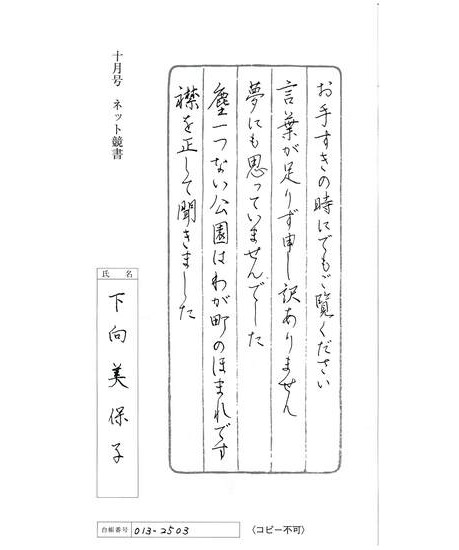 お手すきの時にでもご覧ください
言葉が足りず申し訳ありません
夢にも思っていませんでした
塵一つない公園はわが町のほまれです
襟を正して聞きました
十月号 ネット競書
氏名
下向美保子
台帳番号 013-2503
〈コピー不可〉